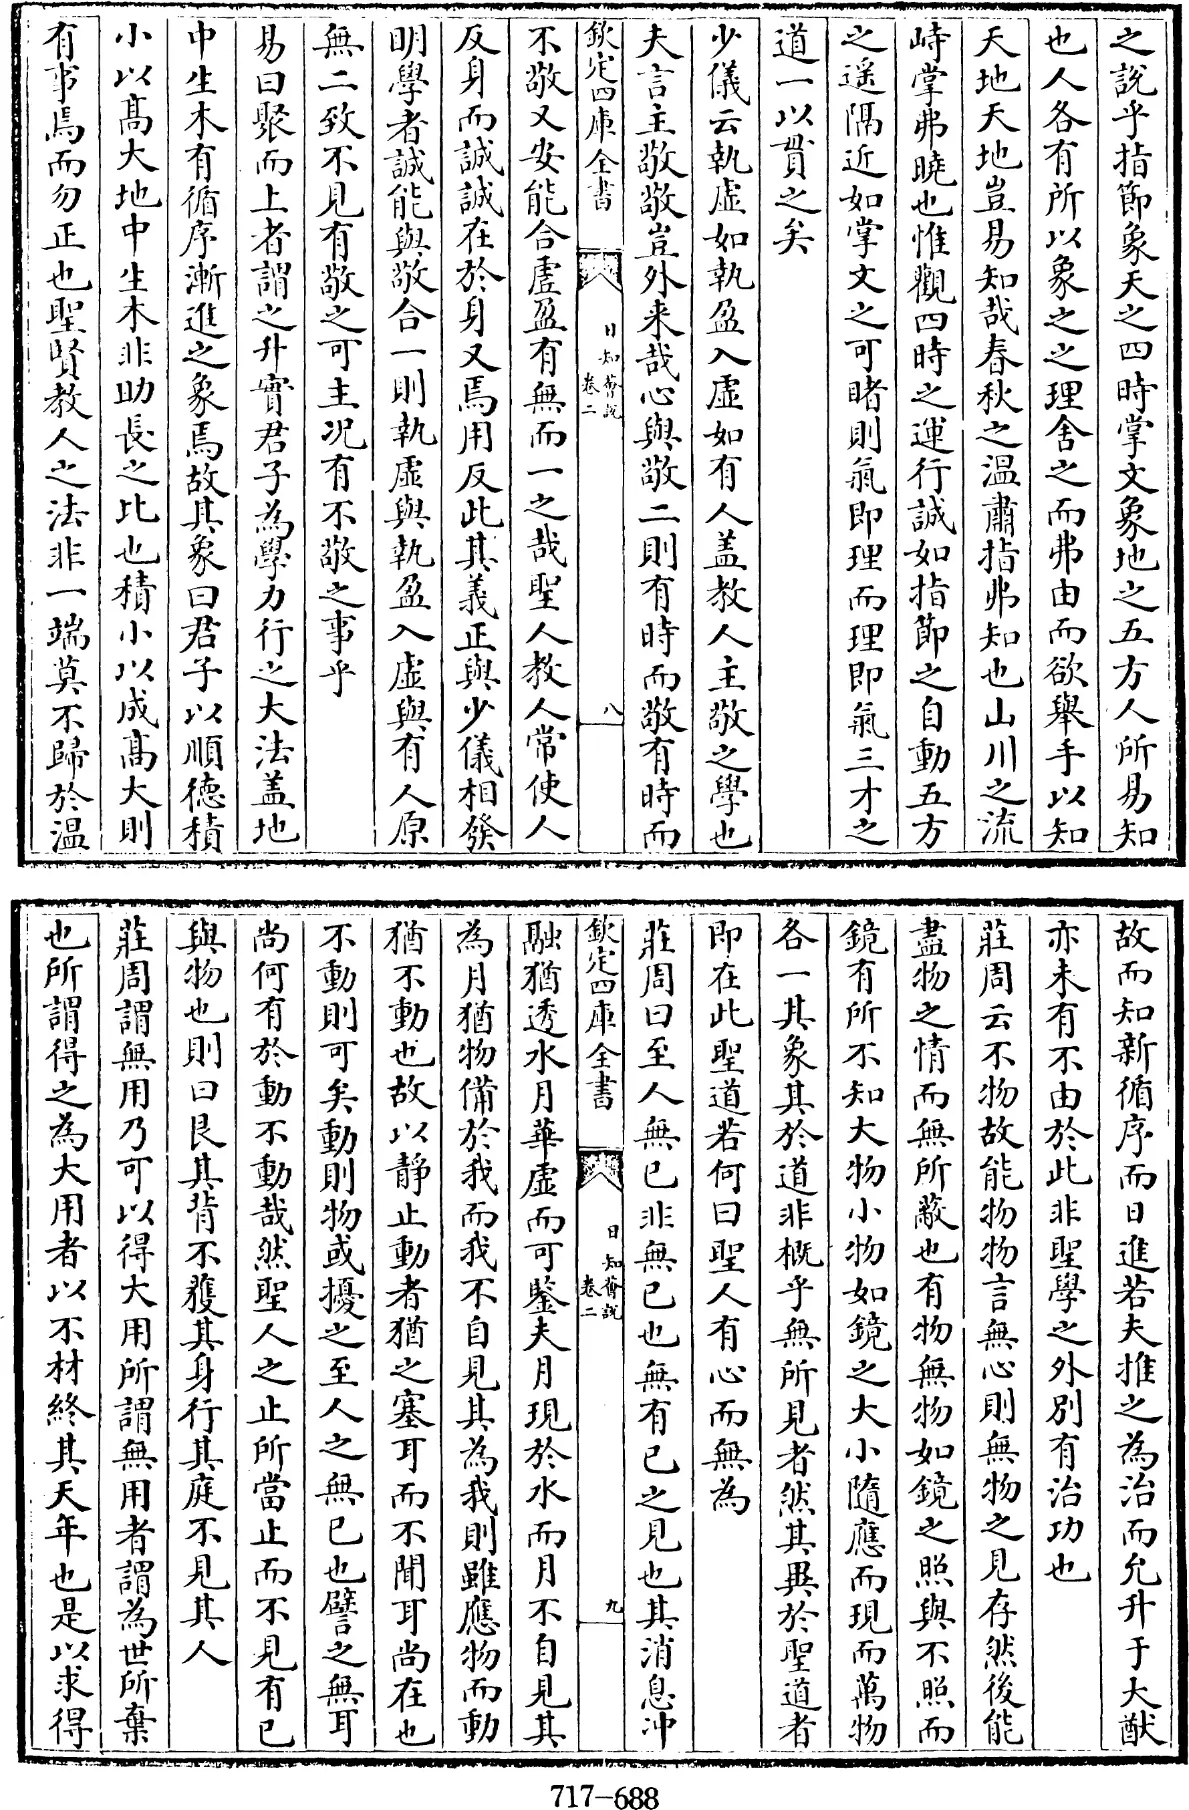 之說乎指節象天之四時掌文象地之五方人所易知
也人各有所以象之之理舍之而弗由而欲舉手以知
天地天地豈易知哉春秋之温肅指弗知也山川之流
峙掌弗曉也惟觀四時之運行誠如指節之自動五方
之遥隔近如掌文之可睹則氣即理而理即氣三才之
道一以貫之矣
少儀云執虛如執盈入虛如有人盖教人主敬之學也
夫言主敬敬豈外来哉心與敬二則有時而敬有時而
欽定四庫全書
日知薈説
卷二
八
不敬又安能合虛盈有無而一之哉聖人教人常使人
反身而誠誠在於身又焉用反此其義正與少儀相發
明學者誠能與敬合一則執虛與執盈入虛與有人原
無二致不見有敬之可主况有不敬之事乎
易曰聚而上者謂之升實君子為學力行之大法盖地
中生木有循序漸進之象焉故其象曰君子以順德積
小以髙大地中生木非助長之比也積小以成髙大則
有事焉而勿正也聖賢教人之法非一端莫不歸於温
故而知新循序而日進若夫推之為治而允升于大猷
亦未有不由於此非聖學之外別有治功也
莊周云不物故能物物言無心則無物之見存然後能
盡物之情而無所蔽也有物無物如鏡之照與不照而
鏡有所不知大物小物如鏡之大小隨應而現而萬物
各一其象其於道非概乎無所見者然其異於聖道者
即在此聖道若何曰聖人有心而無為
莊周曰至人無已非無已也無有已之見也其消息冲
欽定四庫全書
日知薈説
卷二
九
融猶透水月華虛而可鑒夫月現於水而月不自見其
為月猶物備於我而我不自見其為我則雖應物而動
猶不動也故以靜止動者猶之塞耳而不聞耳尚在也
不動則可矣動則物或擾之至人之無已也譬之無耳
尚何有於動不動哉然聖人之止所當止而不見有已
與物也則曰艮其背不獲其身行其庭不見其人
莊周謂無用乃可以得大用所謂無用者謂為世所棄
也所謂得之為大用者以不材終其天年也是以求得
717-688